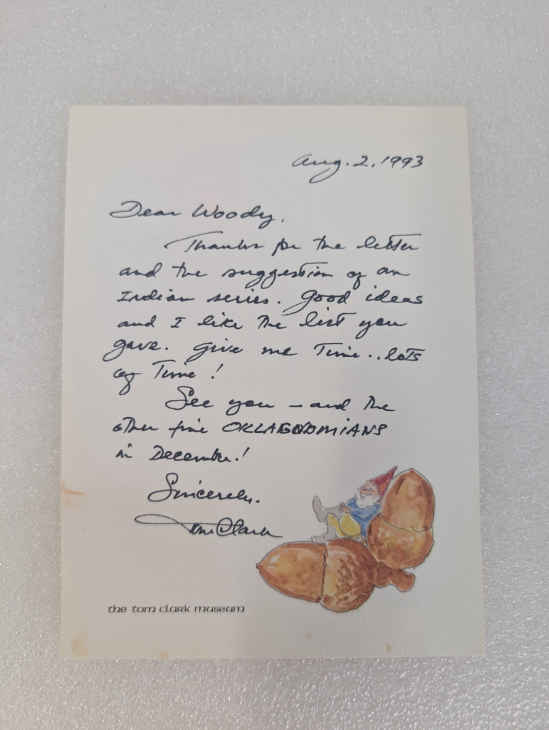 Aug. 2, 1993
Dear Woody,
Thanks for the letter
and the suggestion of an
Indian series. Good ideas
and I like the list you
gave. Give me Time.. lots
of Time!
See you – and the
other fine OKLAGODMIANS
in December!
Sincerely,
Tom Clark
the tom clark museum